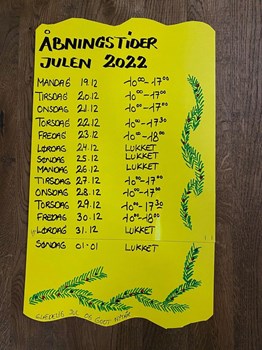 ÅBNINGSTIDER
JULEN 2022
MANDAG 19.12 10⁰⁰-17⁰⁰
TIRSDAG 20.12 10⁰⁰-17⁰⁰
ONSDAG 21.12 10⁰⁰-17⁰⁰
TORSDAG 22.12 10⁰⁰-17³⁰
FREDAG 23.12 10⁰⁰-18⁰⁰
LØRDAG 24.12 LUKKET
SØNDAG 25.12 LUKKET
MANDAG 26.12 LUKKET
TIRSDAG 27.12 10⁰⁰-17⁰⁰
ONSDAG 28.12 10⁰⁰-17⁰⁰
TORSDAG 29.12 10⁰⁰-17³⁰
FREDAG 30.12 10⁰⁰-18⁰⁰
LØRDAG 31.12 LUKKET
SØNDAG 01-01 LUKKET
GLÆDELIG JUL OG GODT NYTÅR